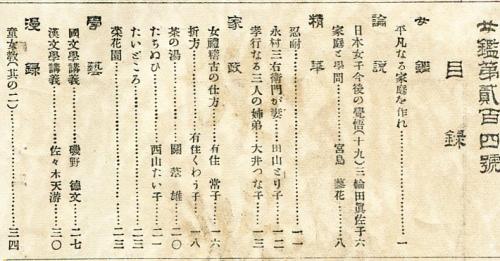 女鑑第貳百四號
目錄
女鑑
平凡なる家庭を作れ……一
論說
日本女子今後の覺悟(十九)三輪田眞佐子 六
家庭と學問……宮島 藝花 八
精華
忍耐……一一
永村三右衛門が妻……田山とり子 一二
孝行なる三人の姉弟…大井つな子 一三
家政
女禮稽古の仕方……有住 常子 一六
折方……有住くわう子 一八
茶の湯……關 葉雄 二〇
たちぬひ……西山たい子 二一
たいどころ……二三
菜花園……二三
學藝
國文學講義……磯野 德文 二七
漢文學講義……佐々木天游 三〇
漫錄
童女敎(其の二)……三四